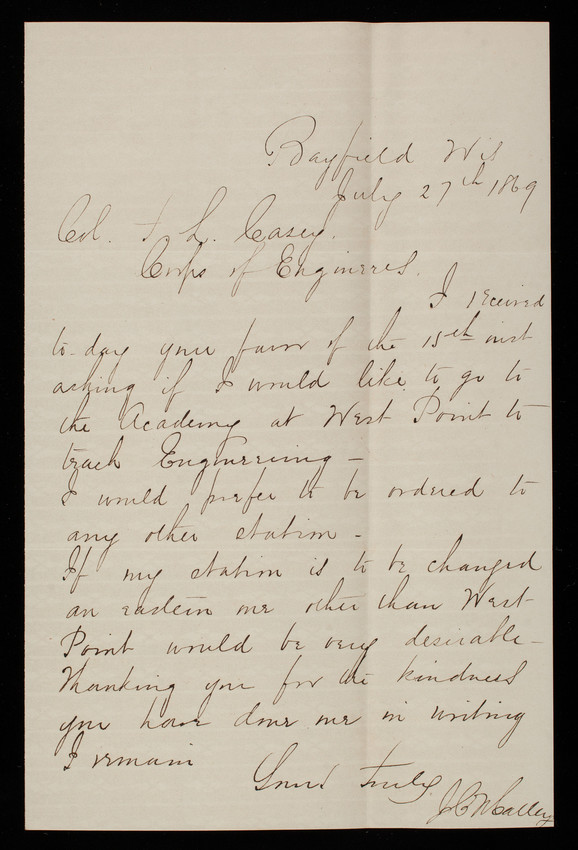 Bayfield Wis
July 27th 1869
Col. T. L. Casey.
Corps of Engineers.
I received
to-day your favor of the 15th inst
asking if I would like to go to
the Academy at West Point to
teach Engineering –
I would prefer to be ordered to
any other station –
If my station is to be changed
an eastern one other than West
Point would be very desirable –
Thanking you for the kindness
you have done me in writing
I remain
Yours Truly